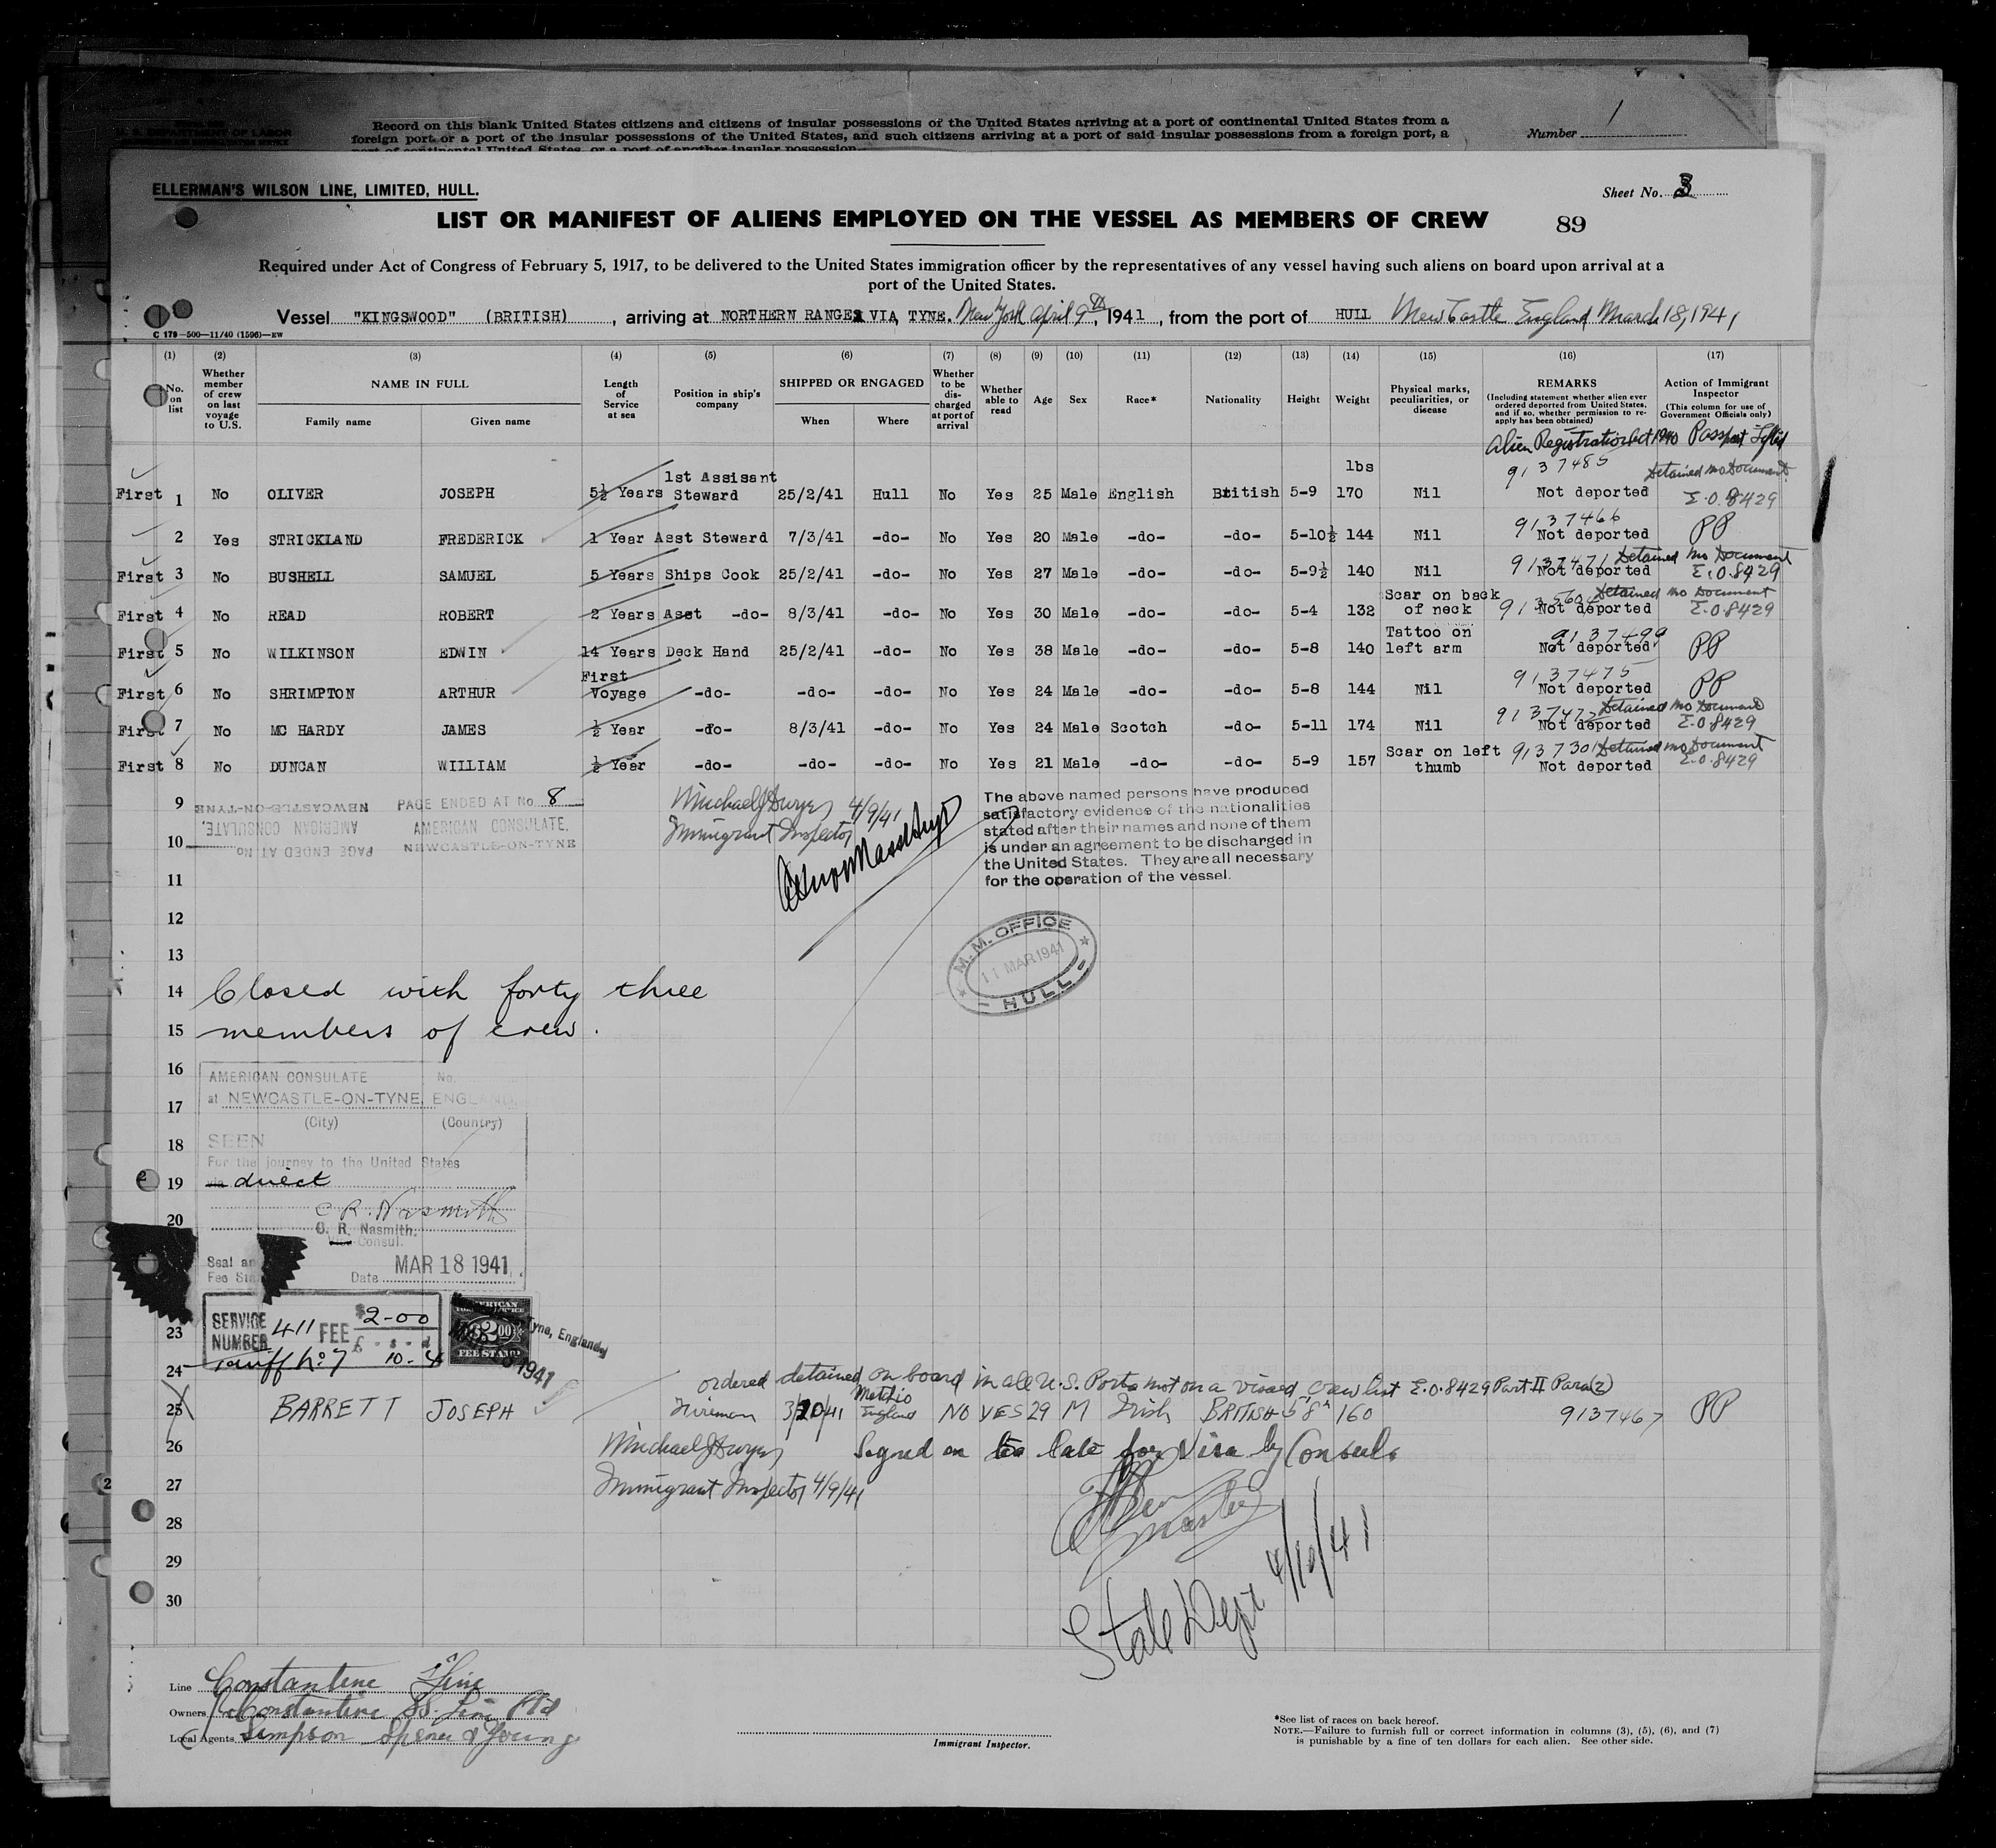 Record on this blank United States citizens and citizens of insular possessions of the United States arriving at a port of continental United States from a
foreign port or a port of the insular possessions of the United States, and such citizens arriving at a port of said insular possessions from a foreign port, a
part of continental United States, or a port of another insular possession.
Number 1
ELLERMAN'S WILSON LINE, LIMITED, HULL.
Sheet No. 3
LIST OR MANIFEST OF ALIENS EMPLOYED ON THE VESSEL AS MEMBERS OF CREW
89
Required under Act of Congress of February 5, 1917, to be delivered to the United States immigration officer by the representatives of any vessel having such aliens on board upon arrival at a
port of the United States.
Vessel "KINGSWOOD" (BRITISH), arriving at NORTHERN RANGE VIA TYNE. New York April 9th, 1941, from the port of HULL New Castle England March 18, 1941
C 179-500-11/40 (1596)-EW
(1) (2) (3) (4) (5) (6) (7) (8) (9) (10) (11) (12) (13) (14) (15) (16) (17)
No. on list
Whether member of crew on last voyage to U.S.
NAME IN FULL
Family name Given name
Length of Service at sea
Position in ship's company
SHIPPED OR ENGAGED
When Where
Whether to be discharged at port of arrival
Whether able to read
Age
Sex
Race*
Nationality
Height
Weight
Physical marks, peculiarities, or disease
REMARKS
(Including statement whether alien ever ordered deported from United States, and if so, whether permission to re-apply has been obtained)
Action of Immigrant Inspector
(This column for use of Government Officials only)
Alien Registration Act 1940 Passport
lbs
First 1 No OLIVER JOSEPH 5½ Years 1st Assisant Steward 25/2/41 Hull No Yes 25 Male English British 5-9 170 Nil 9137485 Not deported Detained no Document E.O. 8429
2 Yes STRICKLAND FREDERICK 1 Year Asst Steward 7/3/41 -do- No Yes 20 Male -do- -do- 5-10½ 144 Nil 9137466 Not deported PP
First 3 No BUSHELL SAMUEL 5 Years Ships Cook 25/2/41 -do- No Yes 27 Male -do- -do- 5-9½ 140 Nil 9137471 Not deported Detained no Document E.O. 8429
First 4 No READ ROBERT 2 Years Asst -do- 8/3/41 -do- No Yes 30 Male -do- -do- 5-4 132 Scar on back of neck Not deported Detained no Document E.O. 8429
First 5 No WILKINSON EDWIN 14 Years Deck Hand 25/2/41 -do- No Yes 38 Male -do- -do- 5-8 140 Tattoo on left arm 9137499 Not deported PP
First 6 No SHRIMPTON ARTHUR First Voyage -do- -do- -do- No Yes 24 Male -do- -do- 5-8 144 Nil 9137475 Not deported PP
First 7 No MC HARDY JAMES ½ Year -do- 8/3/41 -do- No Yes 24 Male Scotch -do- 5-11 174 Nil 9137472 Not deported Detained no Document E.O. 8429
First 8 No DUNCAN WILLIAM ½ Year -do- -do- -do- No Yes 21 Male -do- -do- 5-9 157 Scar on left thumb 9137301 Not deported Detained no Document E.O. 8429
9
10
11
12
13
14
15
16
17
18
19
20
23
24
25
26
27
28
29
30
PAGE ENDED AT No. 8
AMERICAN CONSULATE,
NEWCASTLE-ON-TYNE
PAGE ENDED AT No.
AMERICAN CONSULATE,
NEWCASTLE-ON-TYNE
Michael J Dwyer 4/9/41
Immigrant Inspector
The above named persons have produced
satisfactory evidence of the nationalities
stated after their names and none of them
is under an agreement to be discharged in
the United States. They are all necessary
for the operation of the vessel.
M. M. OFFICE
11 MAR 1941
HULL
Closed with forty three
members of crew.
AMERICAN CONSULATE No.
at NEWCASTLE-ON-TYNE, ENGLAND
(City) (Country)
SEEN
For the journey to the United States
via direct
C. R. Nasmith
C. R. Nasmith.
Vice Consul.
Seal and
Fee Sta
Date MAR 18 1941
SERVICE NUMBER 411 FEE $2-00
£ - s - d
Tariff No. 7 10-
AMERICAN
$2.00
FEE STAMP
Tyne, England
1941
ordered detained on board in all U.S. Ports not on a visaed crew list E.O. 8429 Part II Para(2)
BARRETT JOSEPH Fireman 3/20/41 England NO YES 29 M Irish BRITISH 5'8" 160 9137467 PP
Michael J Dwyer
Immigrant Inspector 4/9/41
Signed on too late for Visa by Consul.
Master
State Dept 4/10/41
Line Constantine Line
Owners Constantine SS. Line Ltd
Local Agents Simpson Spence & Young
Immigrant Inspector.
*See list of races on back hereof.
NOTE.—Failure to furnish full or correct information in columns (3), (5), (6), and (7)
is punishable by a fine of ten dollars for each alien. See other side.